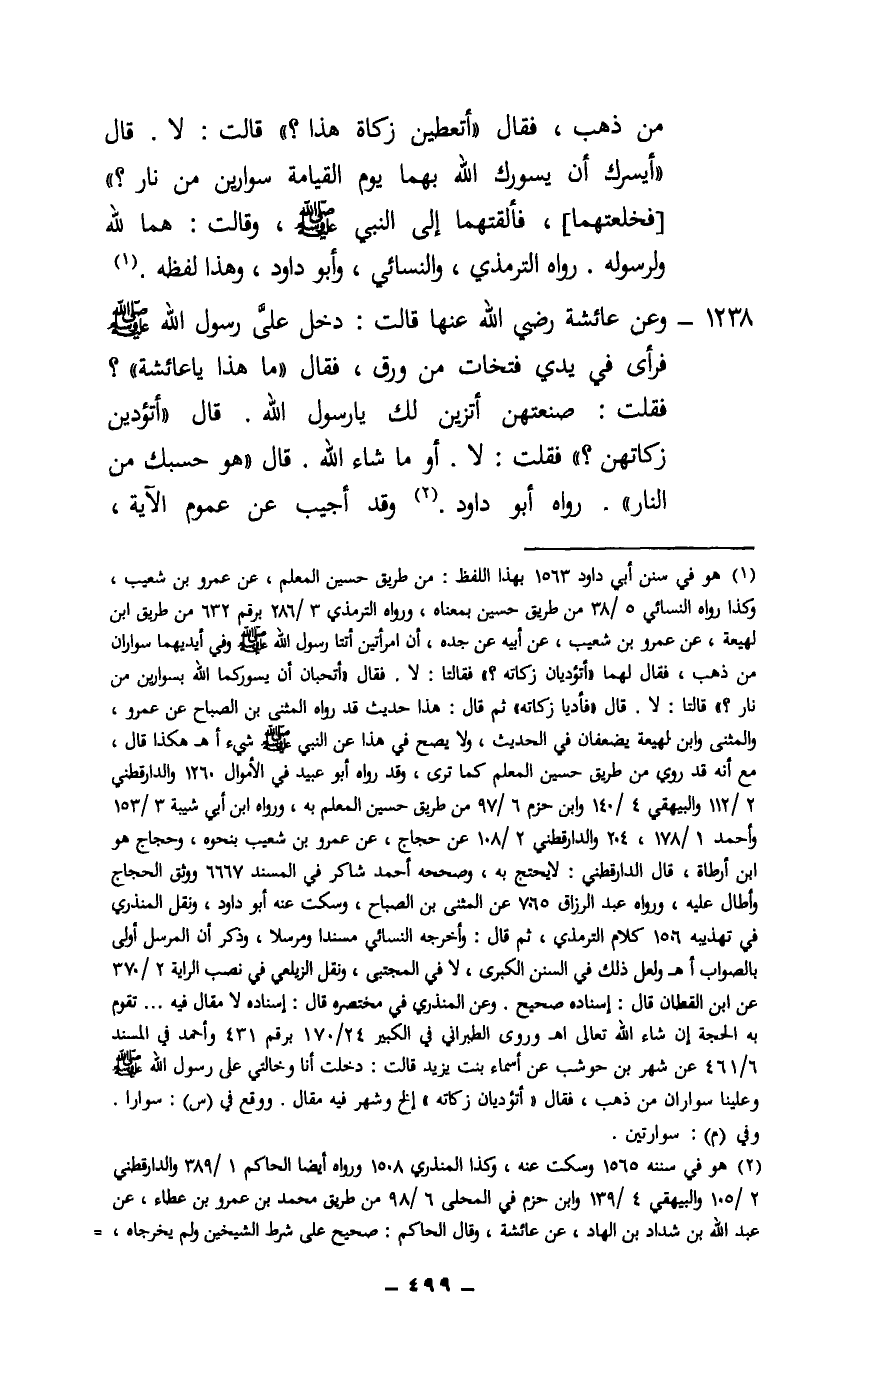 من ذهب ، فقال «أتعطين زكاة هذا ؟» قالت : لا . قال
«أيسرك أن يسورك الله بهما يوم القيامة سوارين من نار ؟»
[فخلعتهما] ، فألقتهما إلى النبي ﷺ ، وقالت : هما لله
ولرسوله . رواه الترمذي ، والنسائي ، وأبو داود ، وهذا لفظه .(١)
١٢٣٨ ـ وعن عائشة رضي الله عنها قالت : دخل عليَّ رسول الله ﷺ
فرأى في يدي فتخات من ورق ، فقال «ما هذا ياعائشة» ؟
فقلت : صنعتهن أتزين لك يارسول الله . قال «أتؤدين
زكاتهن ؟» فقلت : لا . أو ما شاء الله . قال «هو حسبك من
النار» . رواه أبو داود .(٢) وقد أجيب عن عموم الآية ،
(١) هو في سنن أبي داود ١٥٦٣ بهذا اللفظ : من طريق حسين المعلم ، عن عمرو بن شعيب ،
وكذا رواه النسائي ٥ /٣٨ من طريق حسين بمعناه ، ورواه الترمذي ٣ /٢٨٦ برقم ٦٣٢ من طريق ابن
لهيعة ، عن عمرو بن شعيب ، عن أبيه عن جده ، أن امرأتين أتتا رسول الله ﷺ وفي أيديهما سواران
من ذهب ، فقال لهما «أتؤديان زكاته ؟» فقالتا : لا . فقال «أتحبان أن يسوركما الله بسوارين من
نار ؟» قالتا : لا . قال «فأديا زكاته» ثم قال : هذا حديث قد رواه المثنى بن الصباح عن عمرو ،
والمثنى وابن لهيعة يضعفان في الحديث ، ولا يصح في هذا عن النبي ﷺ شيء أ هـ هكذا قال ،
مع أنه قد روي من طريق حسين المعلم كما ترى ، وقد رواه أبو عبيد في الأموال ١٢٦٠ والدارقطني
٢ /١١٢ والبيهقي ٤ /١٤٠ وابن حزم ٦ /٩٧ من طريق حسين المعلم به ، ورواه ابن أبي شيبة ٣ /١٥٣
وأحمد ١ /١٧٨ ، ٢٠٤ والدارقطني ٢ /١٠٨ عن حجاج ، عن عمرو بن شعيب بنحوه ، وحجاج هو
ابن أرطاة ، قال الدارقطني : لايحتج به ، وصححه أحمد شاكر في المسند ٦٦٦٧ ووثق الحجاج
وأطال عليه ، ورواه عبد الرزاق ٧٠٦٥ عن المثنى بن الصباح ، وسكت عنه أبو داود ، ونقل المنذري
في تهذيبه ١٥٠٦ كلام الترمذي ، ثم قال : وأخرجه النسائي مسندا ومرسلا ، وذكر أن المرسل أولى
بالصواب أ هـ ولعل ذلك في السنن الكبرى ، لا في المجتبى ، ونقل الزيلعي في نصب الراية ٢ /٣٧٠
عن ابن القطان قال : إسناده صحيح . وعن المنذري في مختصره قال : إسناده لا مقال فيه ... تقوم
به الحجة إن شاء الله تعالى اهـ وروى الطبراني في الكبير ١٧٠/٢٤ برقم ٤٣١ وأحمد في المسند
٤٦١/٦ عن شهر بن حوشب عن أسماء بنت يزيد قالت : دخلت أنا وخالتي على رسول الله ﷺ
وعلينا سواران من ذهب ، فقال « أتؤديان زكاته » إلخ وشهر فيه مقال . ووقع في (س) : سوارا .
وفي (م) : سوارتين .
(٢) هو في سننه ١٥٦٥ وسكت عنه ، وكذا المنذري ١٥٠٨ ورواه أيضا الحاكم ١ /٣٨٩ والدارقطني
٢ /١٠٥ والبيهقي ٤ /١٣٩ وابن حزم في المحلى ٦ /٩٨ من طريق محمد بن عمرو بن عطاء ، عن
عبد الله بن شداد بن الهاد ، عن عائشة ، وقال الحاكم : صحيح على شرط الشيخين ولم يخرجاه ، =
ـ ٤٩٩ ـ